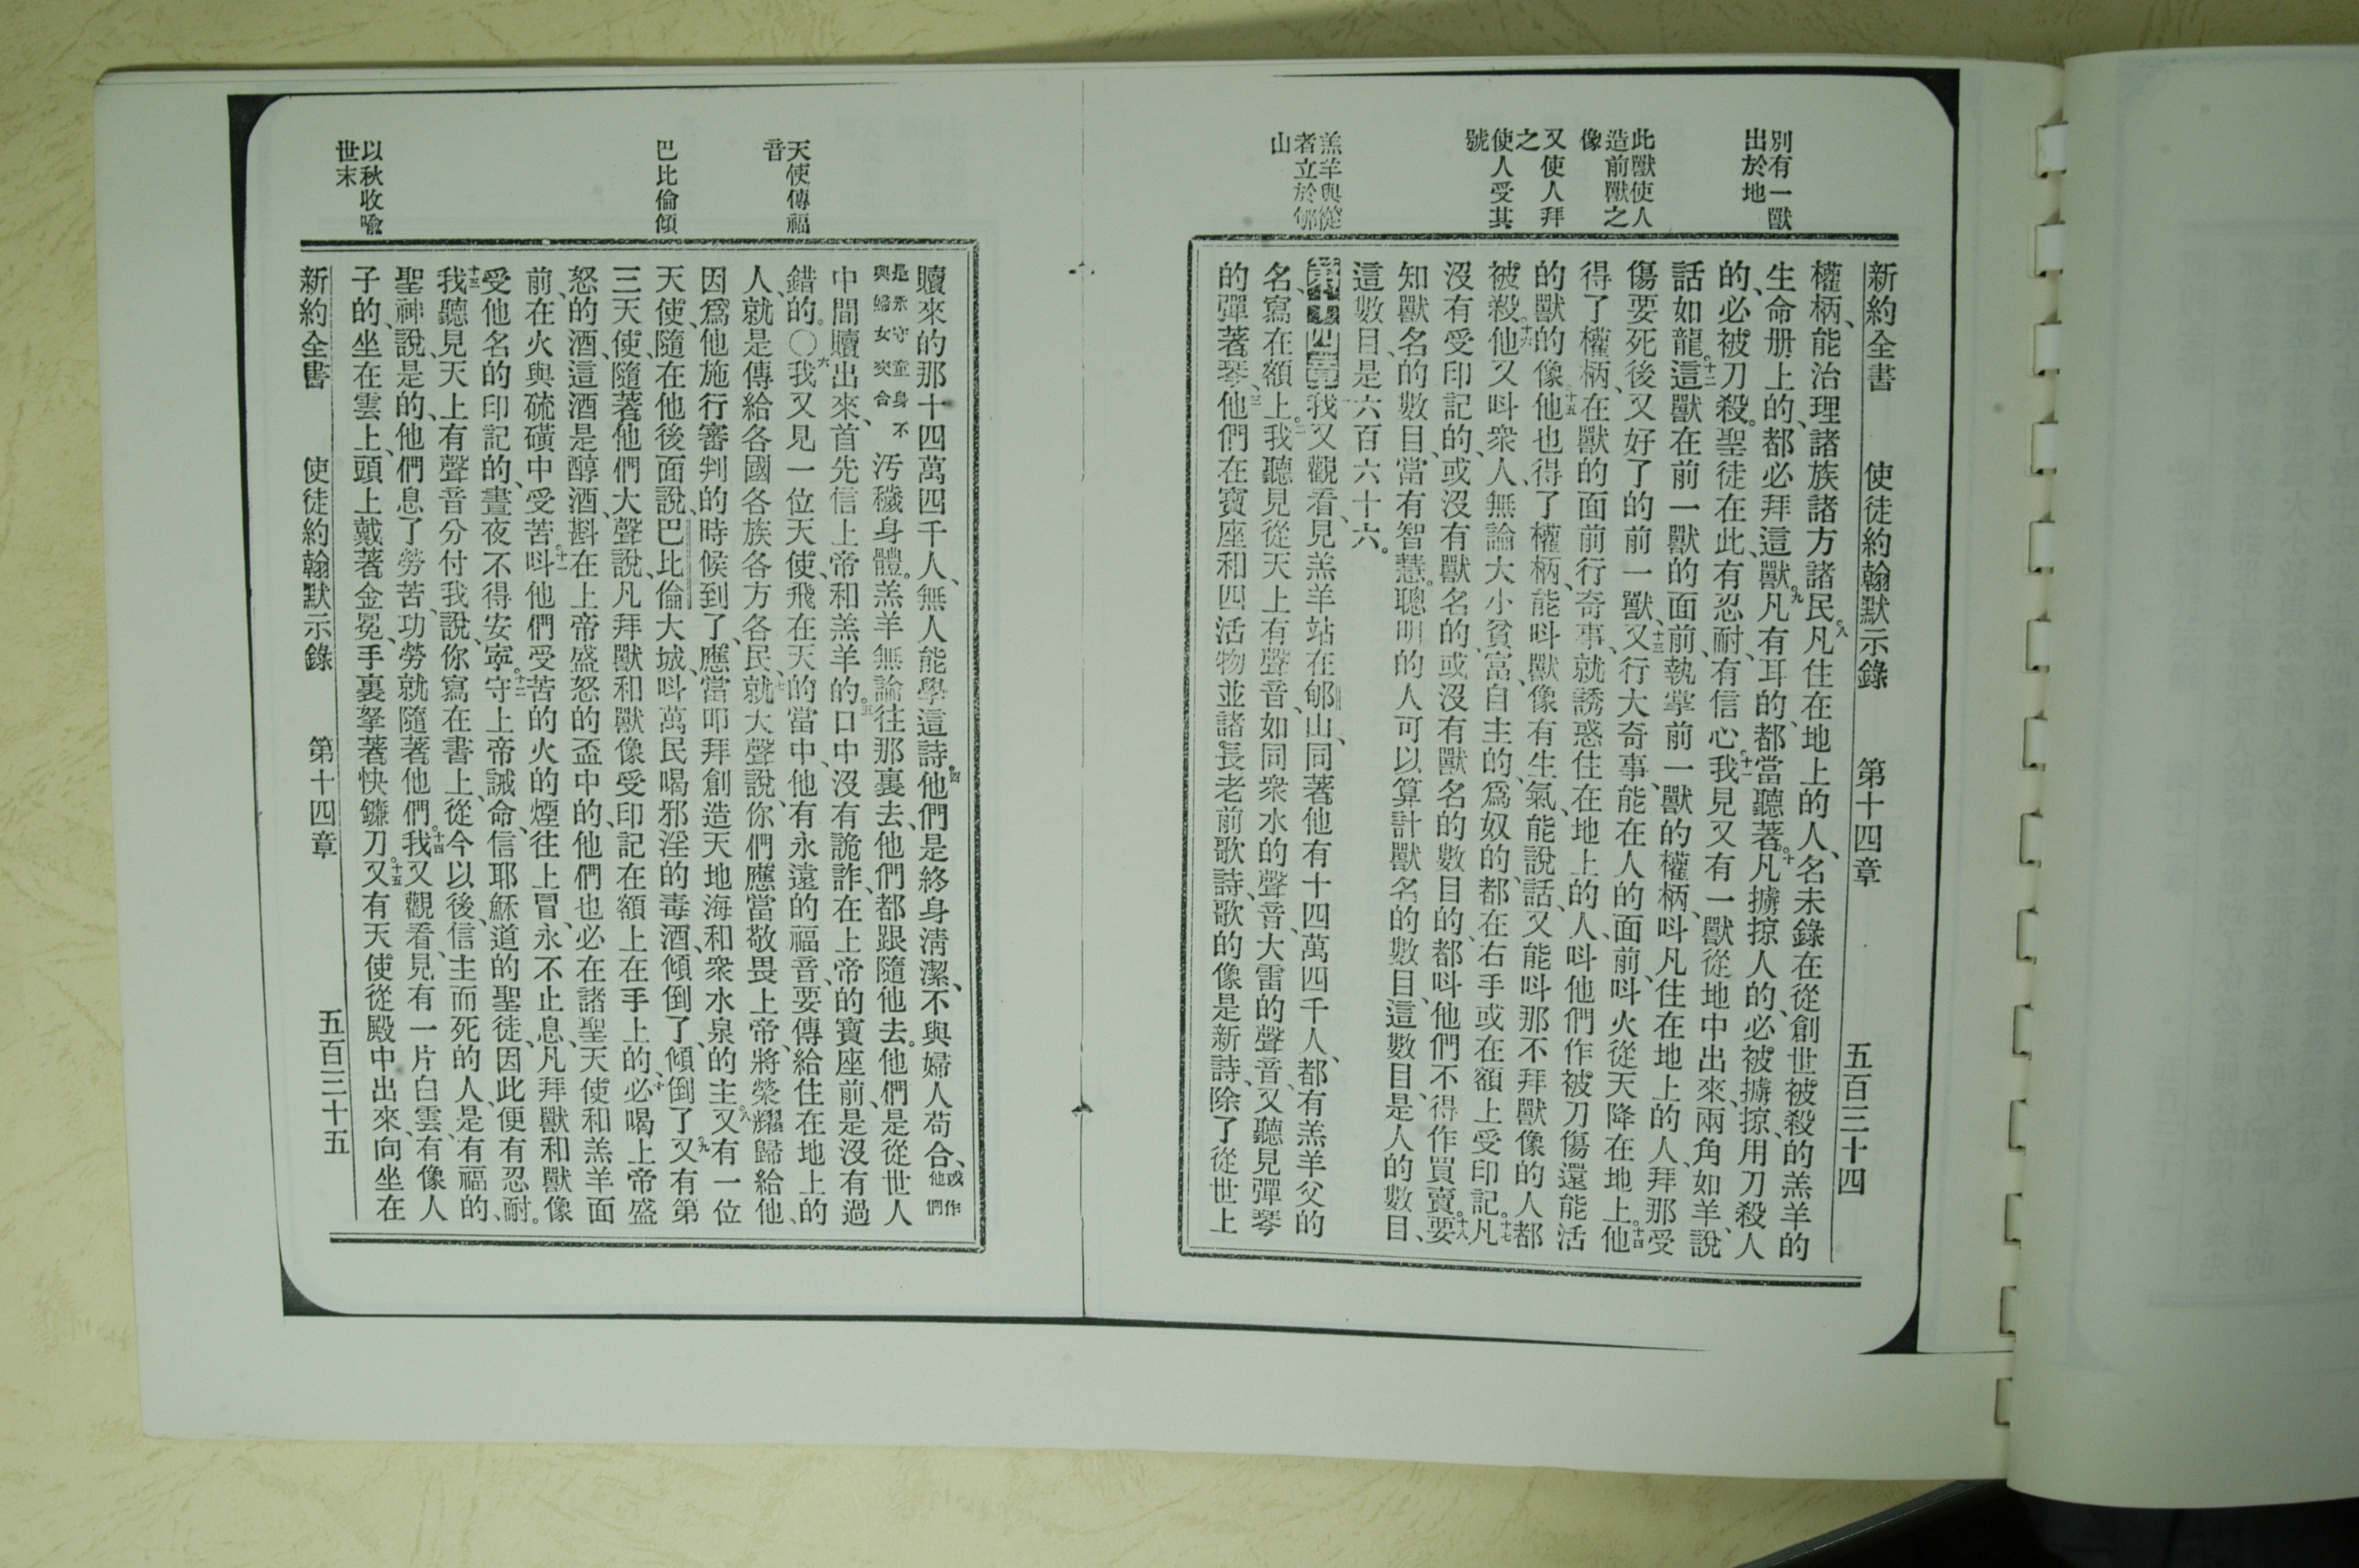 別有一獸
出於地
此獸使人
造前獸之
像
又使人拜
之
使人受其
號
羔羊與從
者立於郇
山
新約全書 使徒約翰默示錄 第十四章 五百三十四
權柄、能治理諸族諸方諸民。八凡住在地上的人、名未錄在從創世被殺的羔羊的
生命册上的、都必拜這獸。九凡有耳的、都當聽著。十凡擄掠人的、必被擄掠、用刀殺人
的、必被刀殺。聖徒在此、有忍耐、有信心。十一我見又有一獸從地中出來、兩角如羊、說
話如龍。十二這獸在前一獸的面前、執掌前一獸的權柄、呌凡住在地上的人、拜那受
傷要死後又好了的前一獸、十三又行大奇事、能在人的面前、呌火從天降在地上。十四他
得了權柄、在獸的面前行奇事、就誘惑住在地上的人、呌他們作被刀傷還能活
的獸的像、十五他也得了權柄、能呌獸像有生氣、能說話、又能呌那不拜獸像的人都
被殺。十六他又呌衆人、無論大小貧富、自主的、爲奴的、都在右手或在額上受印記。十七凡
沒有受印記的、或沒有獸名的、或沒有獸名的數目的、都呌他們不得作買賣。十八要
知獸名的數目、當有智慧。聰明的人可以算計獸名的數目、這數目、是人的數目、
這數目、是六百六十六。
第十四章我又觀看、見羔羊站在郇山、同著他有十四萬四千人、都有羔羊父的
名、寫在額上。二我聽見從天上有聲音、如同衆水的聲音、大雷的聲音、又聽見彈琴
的彈著琴、三他們在寶座和四活物並諸長老前歌詩、歌的像是新詩、除了從世上
天使傳福
音
巴比倫傾
以秋收喻
世末
贖來的那十四萬四千人、無人能學這詩。四他們是終身清潔、不與婦人苟合、或作他們
是永守童身不與婦女交合汚穢身體。羔羊無論往那裏去、他們都跟隨他去。他們是從世人
中間贖出來、首先信上帝和羔羊的。五口中沒有詭詐、在上帝的寶座前、是沒有過
錯的。〇六我又見一位天使、飛在天的當中、他有永遠的福音、要傳給住在地上的
人、就是傳給各國各族各方各民、七就大聲說、你們應當敬畏上帝、將榮耀歸給他、
因爲他施行審判的時候到了、應當叩拜創造天地海和衆水泉的主。八又有一位
天使、隨在他後面說、巴比倫大城、呌萬民喝邪淫的毒酒、傾倒了、傾倒了。九又有第
三天使、隨著他們大聲說、凡拜獸和獸像、受印記在額上在手上的、十必喝上帝盛
怒的酒、這酒是醇酒、斟在上帝盛怒的盃中的、他們也必在諸聖天使和羔羊面
前、在火與硫磺中受苦。十一呌他們受苦的火的煙往上冒、永不止息、凡拜獸和獸像
受他名的印記的、晝夜不得安寧。十二守上帝誡命、信耶穌道的聖徒、因此便有忍耐。
十三我聽見天上有聲音分付我說、你寫在書上、從今以後、信主而死的人、是有福的、
聖神說、是的、他們息了勞苦、功勞就隨著他們。十四我又觀看、見有一片白雲、有像人
子的、坐在雲上、頭上戴著金冕、手裏拏著快鐮刀。十五又有天使從殿中出來、向坐在
新約全書 使徒約翰默示錄 第十四章 五百三十五